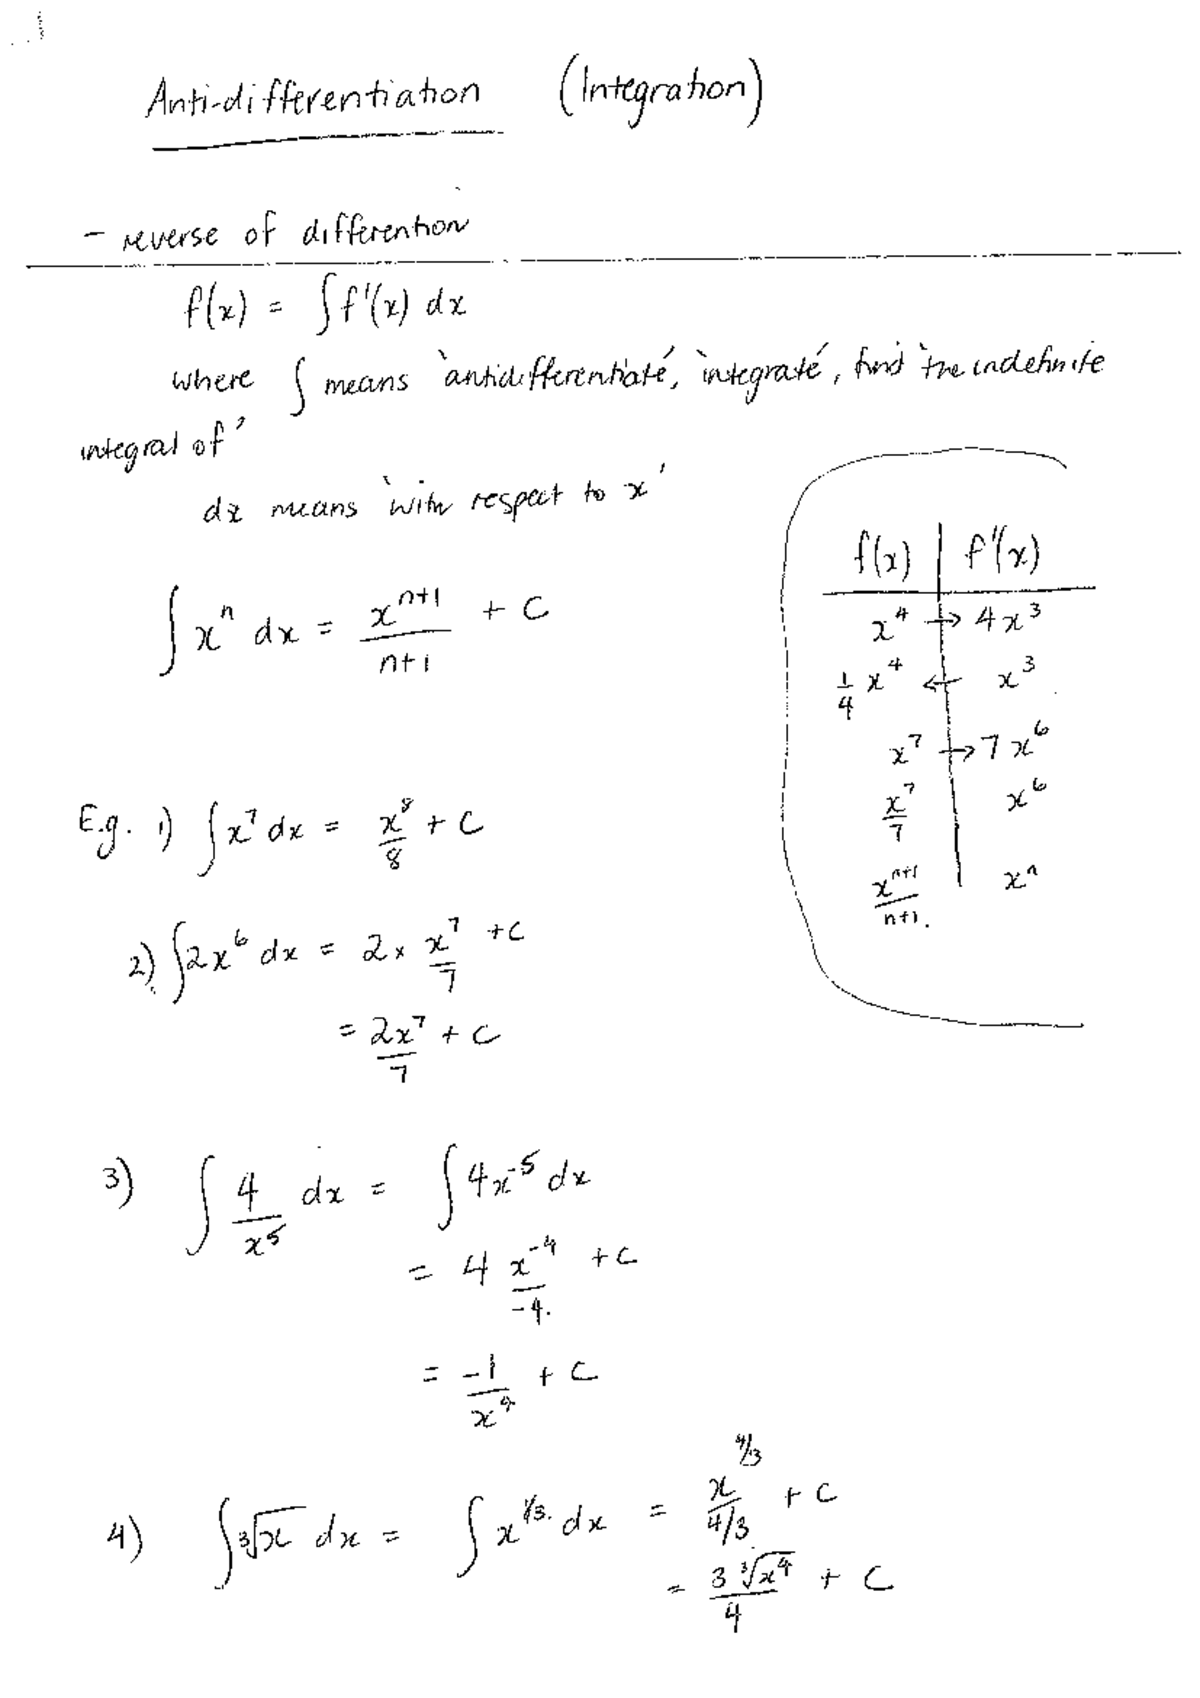 Anti-differentiation (Integration)
- reverse of differention
f(x) = ∫f'(x) dx
where ∫ means 'antidifferentiate', 'integrate', find 'the indefinite
integral of'
dx means 'with respect to x'
∫ xⁿ dx = xⁿ⁺¹/n+1 + C
f(x) | f'(x)
x⁴ → 4x³
1/4 x⁴ ← x³
x⁷ → 7x⁶
x⁷/7 x⁶
xⁿ⁺¹/n+1. xⁿ
E.g. 1) ∫x⁷ dx = x⁸/8 + C
2) ∫2x⁶ dx = 2 × x⁷/7 + C
= 2x⁷/7 + C
3) ∫ 4/x⁵ dx = ∫4x⁻⁵ dx
= 4 x⁻⁴/-4. + C
= -1/x⁴ + C
4) ∫³√x dx = ∫ x^1/3. dx = x^4/3 / 4/3 + C
= 3 ³√x⁴ / 4 + C